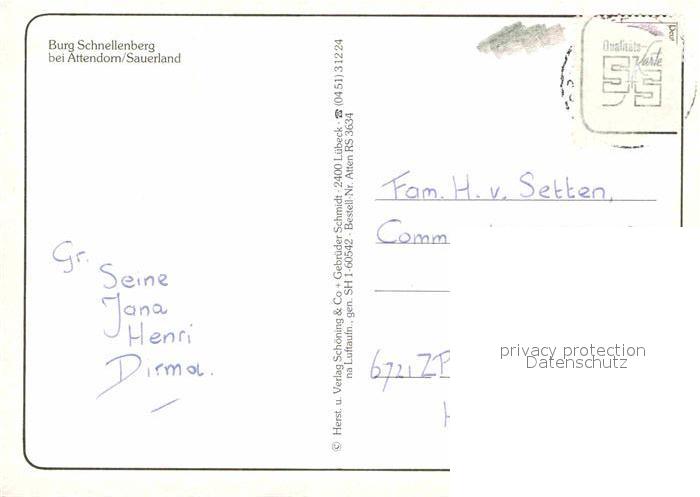 Burg Schnellenberg
bei Attendorn/Sauerland
© Herst. u. Verlag Schöning & Co + Gebrüder Schmidt · 2400 Lübeck · ☎ (0451) 31224
na Luftaufn., gen. SH 1-60542 · Bestell-Nr. Atten RS 3634
Qualitäts-
Karte
Fam. H. v. Setten,
Comm
6721 ZP
Gr.
Seine
Jana
Henri
Dirma.
privacy protection
Datenschutz